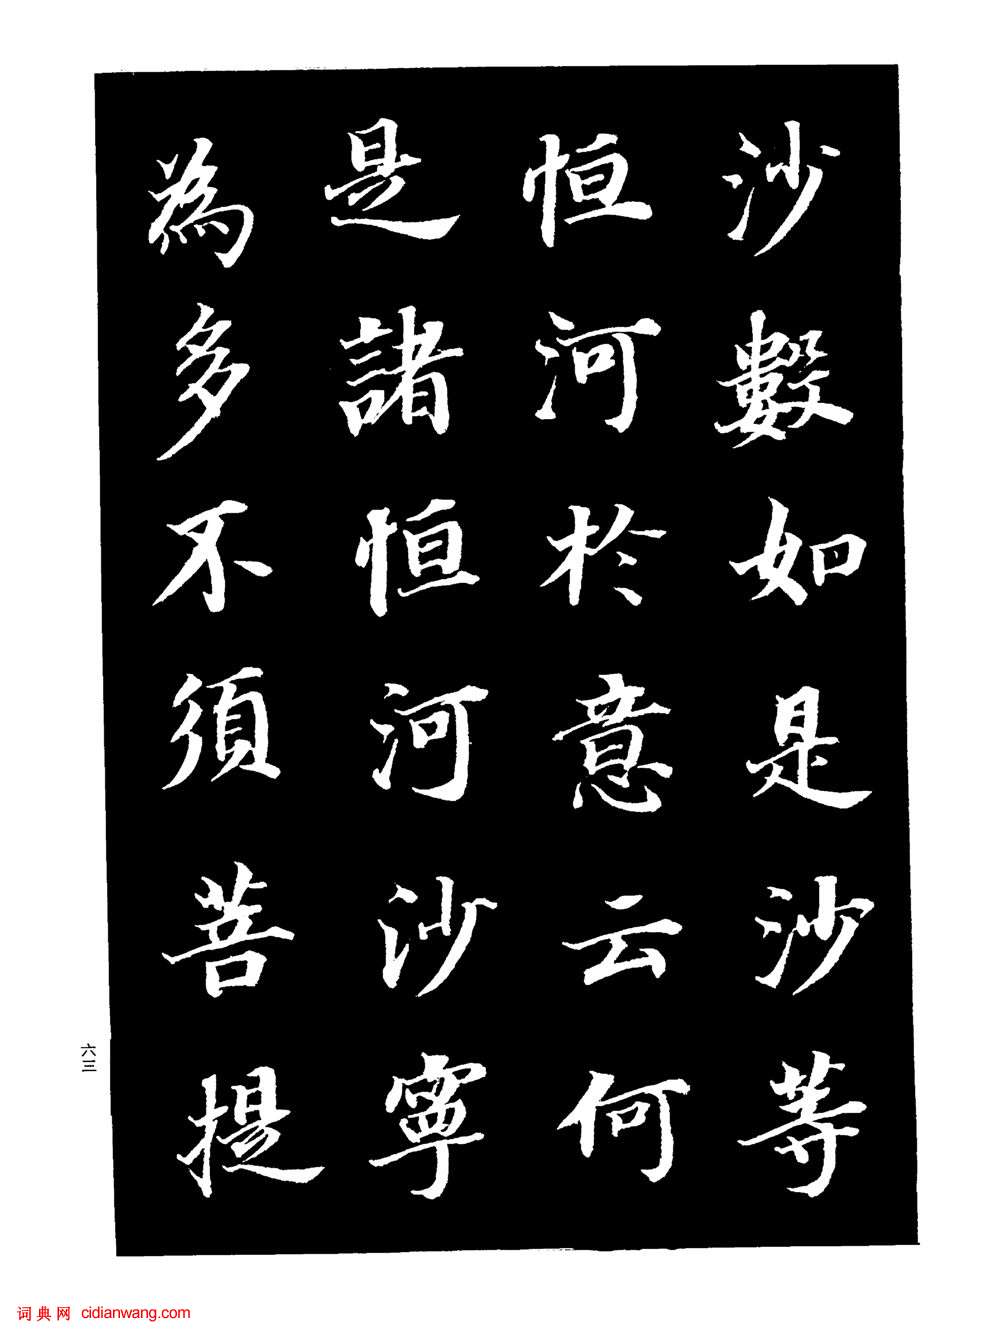 沙數如是沙等
恒河於意云何
是諸恒河沙寧
為多不須菩提
六三
词典网 cidianwang.com